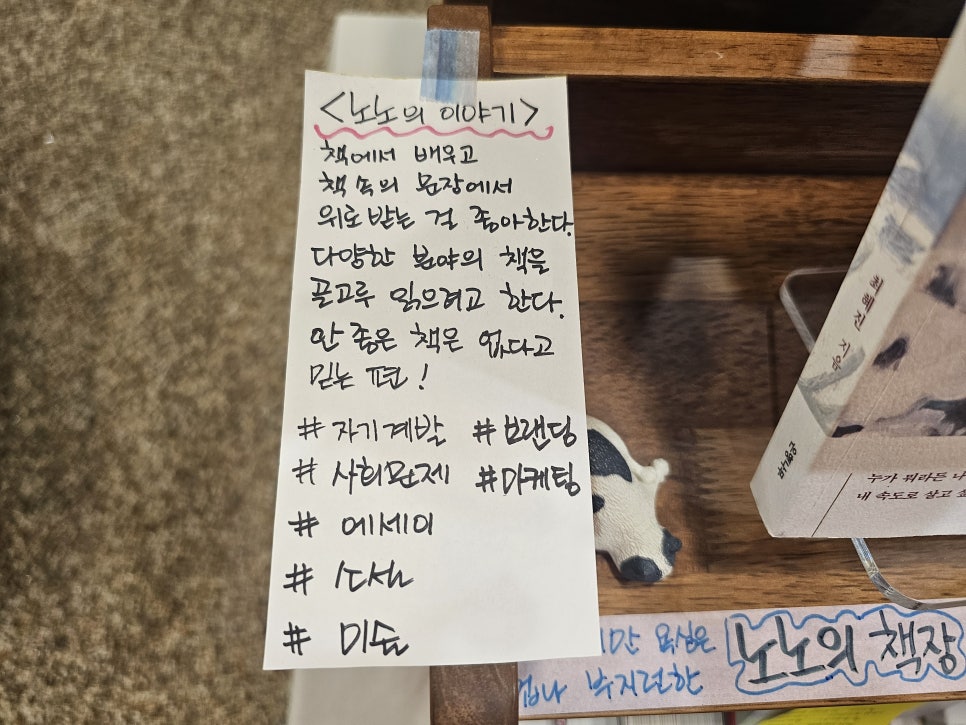 <노노의 이야기>
책에서 배우고
책 속의 문장에서
위로받는 걸 좋아한다.
다양한 분야의 책을
골고루 읽으려고 한다.
안 좋은 책은 없다고
믿는 편!
#자기계발 #브랜딩
#사회문제 #마케팅
#에세이
#소설
#미술
최혜진 지음
누가 뭐라든 나
내 속도로 살고 싶
지만 욕심은
없나 부지런한
노노의 책장